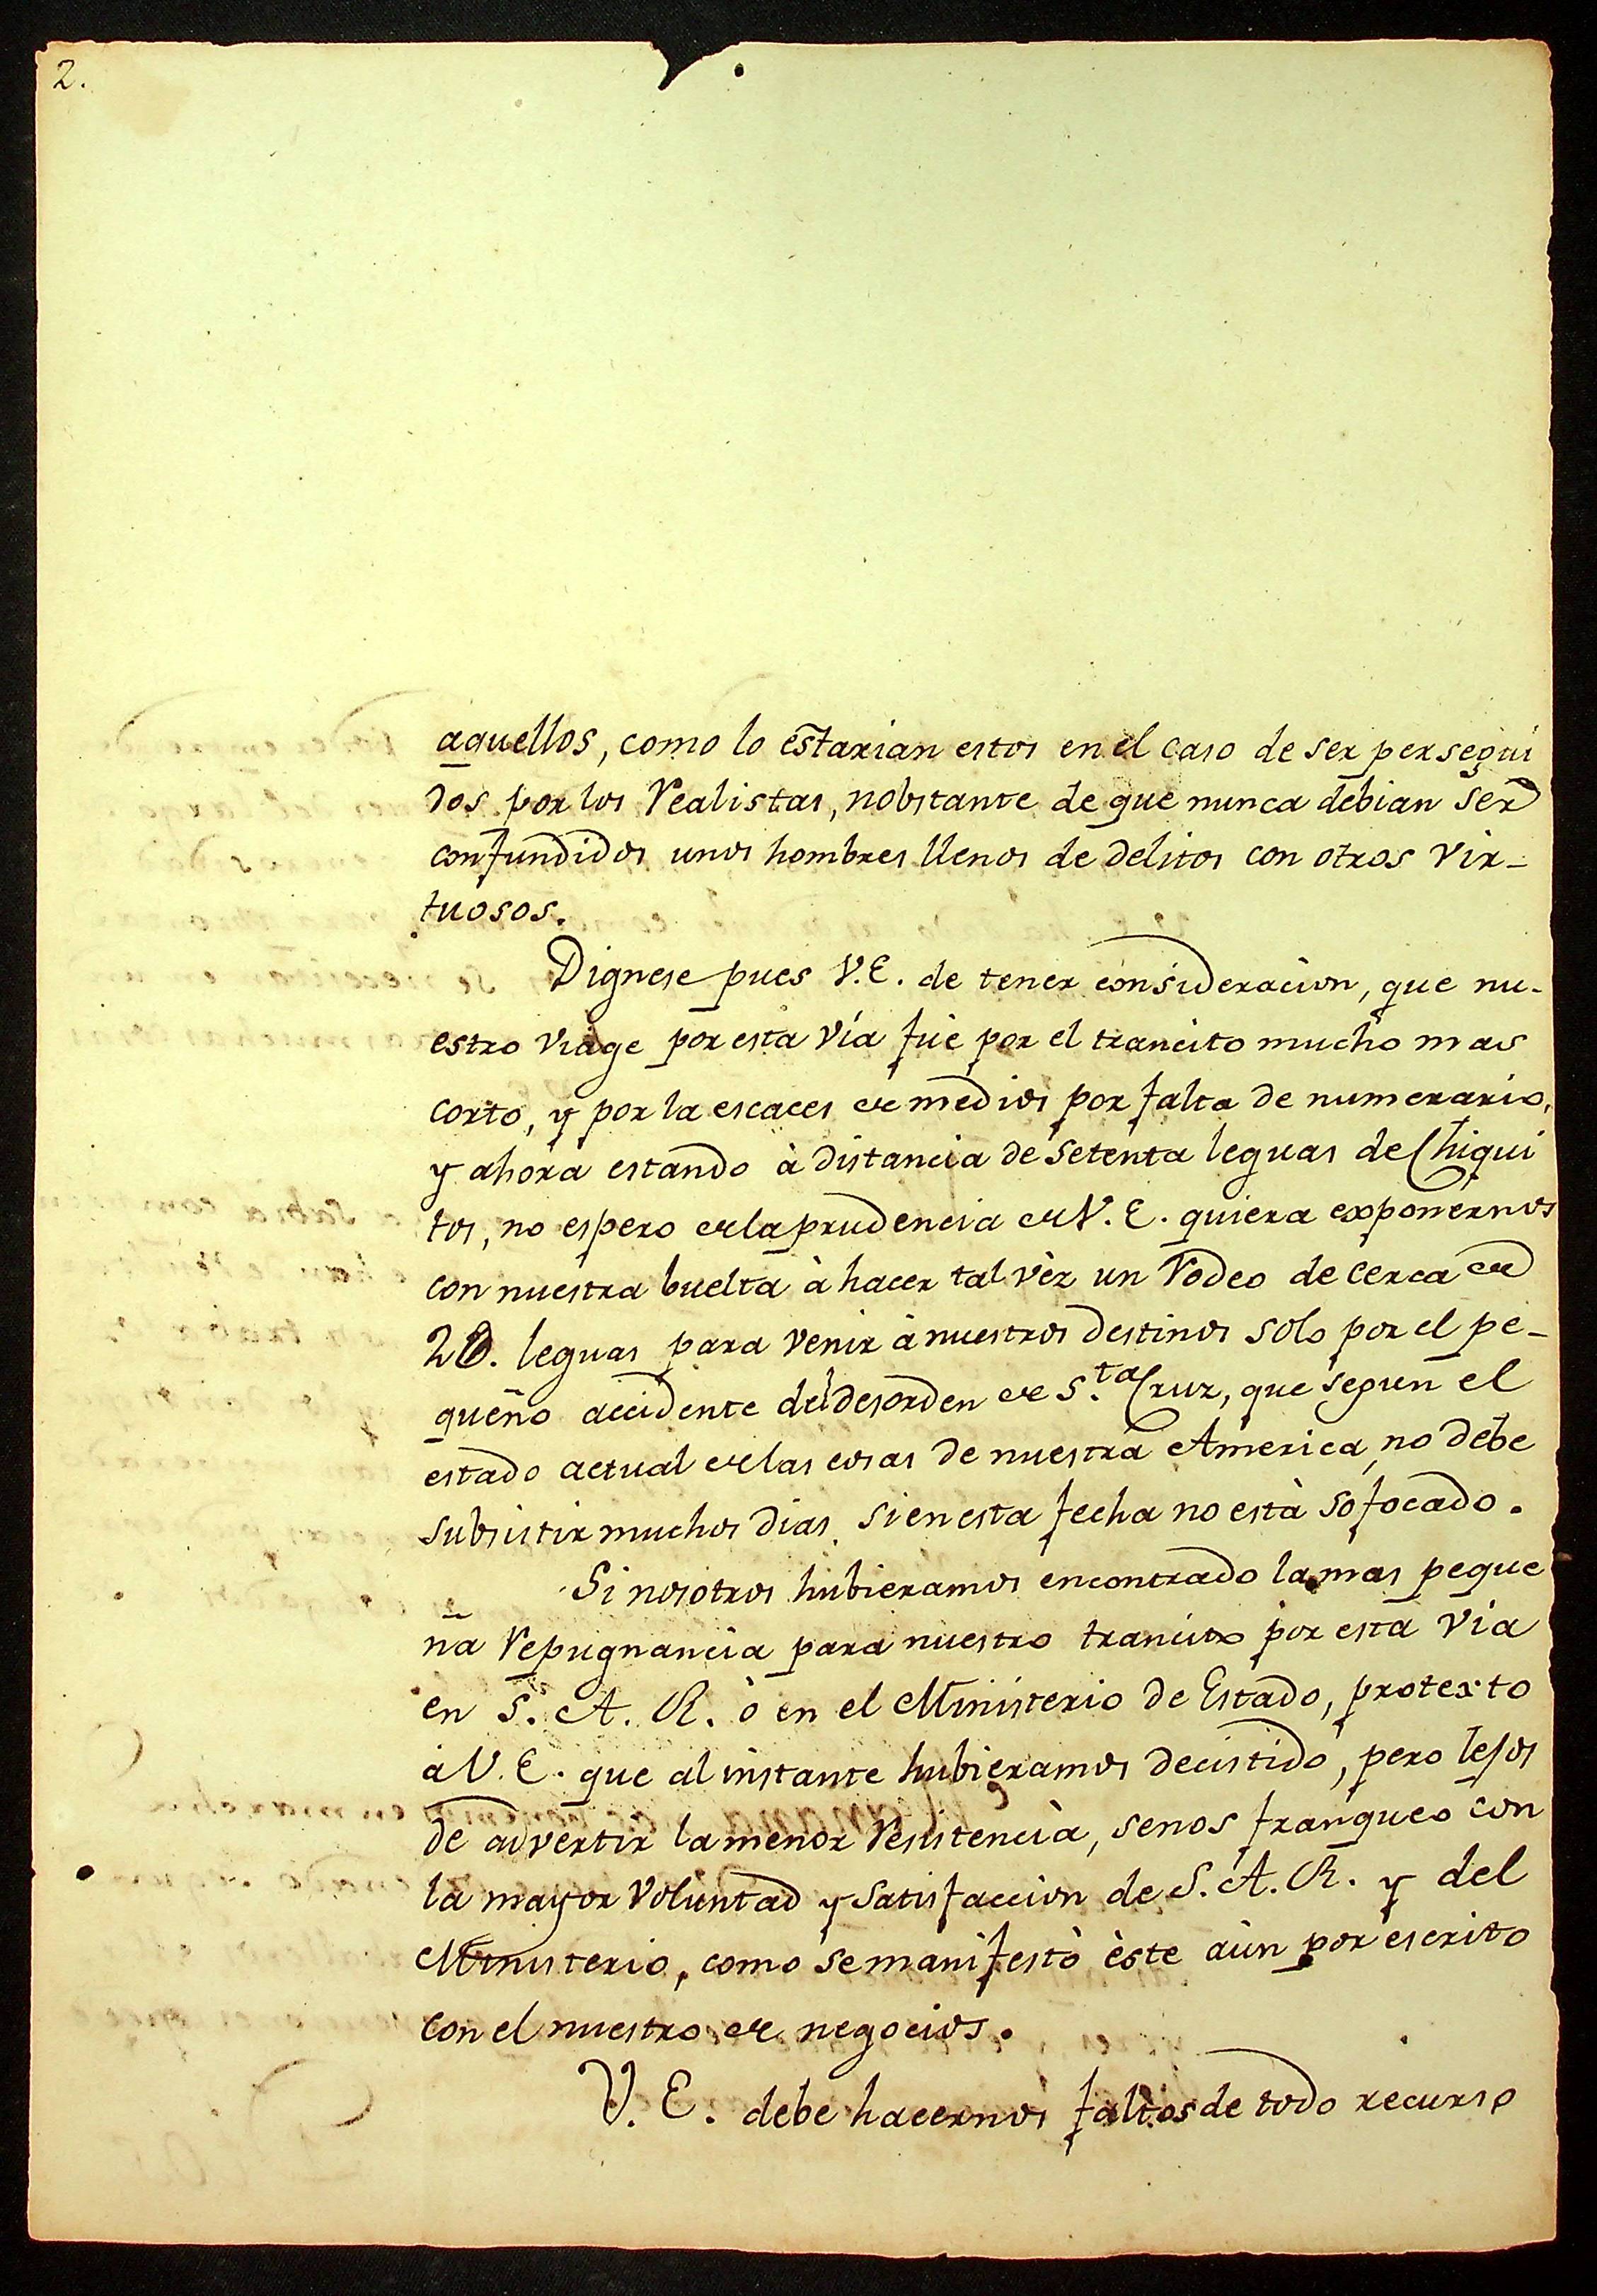 2.
aquellos, como lo estarian estos en el caso de ser persegui
dos por los Realistas, nobstante de que nunca debian ser
confundidos unos hombres llenos de delitos con otros vir-
tuosos.
Dignese pues V.E. de tener consideracion, que nu-
estro viage por esta via fue por el trancito mucho mas
corto, y por la escaces de medios por falta de numerario,
y ahora estando à distancia de setenta leguas de Chiqui
tos, no espero de la prudencia de V. E. quiera exponernos
con nuestra buelta à hacer tal vèz un Rodeo de cerca de
leguas para venir à nuestros destinos solo por el pe-
queño accidente del desorden de S.ta Cruz, que segun el
estado actual de las cosas de nuestra America, no debe
subsistir muchos dias, si en esta fecha no està sofocado.
Si nosotros hubieramos encontrado la mas peque
ña Repugnancia para nuestro trancito por esta via
en S. A. R. ò en el Ministerio de Estado, protexto
à V. E. que al instante hubieramos decistido, pero lejos
de advertir la menor Resistencia, se nos franqueo con
la mayor Voluntad y Satisfaccion de S. A. R. y del
Ministerio, como se manifestò èste aùn por escrito
con el nuestro de negocios.
V. E. debe hacernos faltos de todo recurso